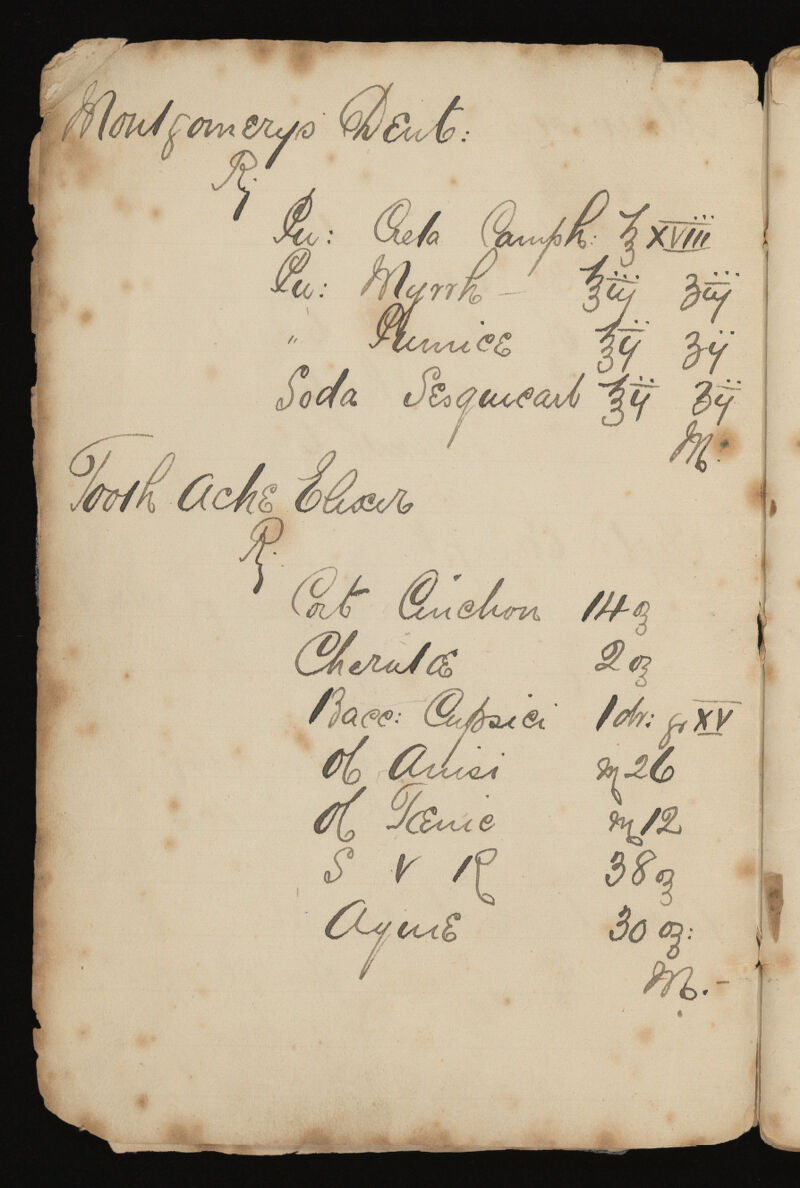 Montgomerys Dent:
℞
Pu: Creta Camph: ℥ xviii
Pu: Myrrh – ℥iij ʒiij
" Pumice ℥ij ʒij
Soda Sesquicarb ℥ij ʒij
M.
Tooth Ache Elixer
℞
Cort Cinchon 14 oz
Cheratæ 2 oz
Bacc: Capsici 1 dr: gr XV
Ol Anisi ♏26
Ol ♏12
S V R 38 oz
Aquæ 30 oz:
M.–